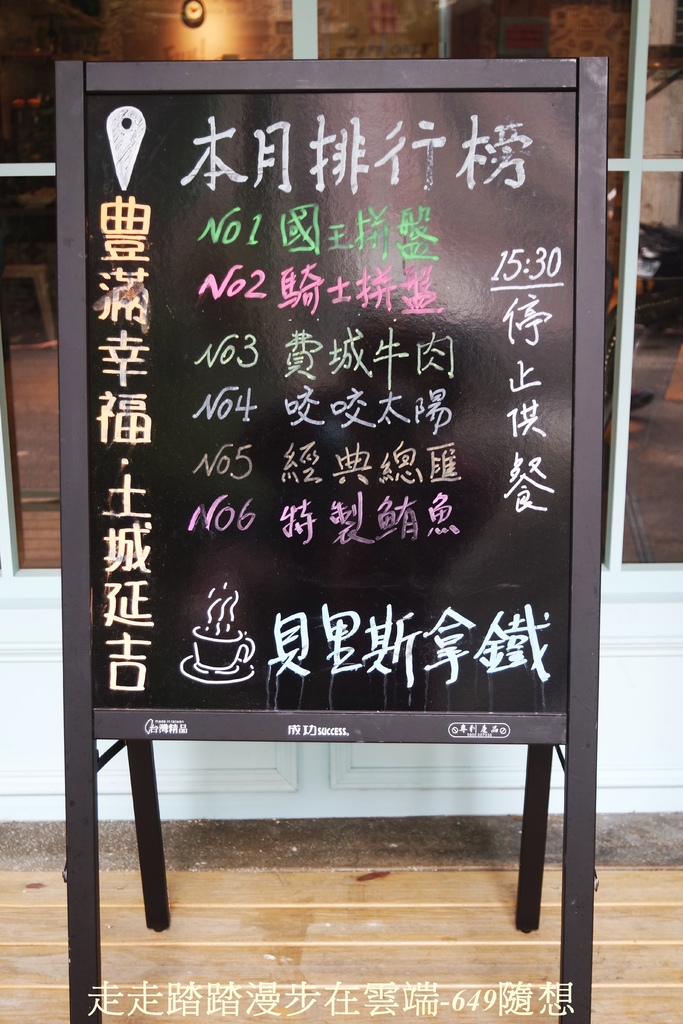 本月排行榜
豊滿幸福·土城延吉
No1 國王拼盤
No2 騎士拼盤
No3 費城牛肉
No4 咬咬太陽
No5 經典總匯
No6 特製鮪魚
15:30
停止供餐
貝里斯拿鐵
台灣精品
成功SUCCESS
專利產品
走走踏踏漫步在雲端-649隨想